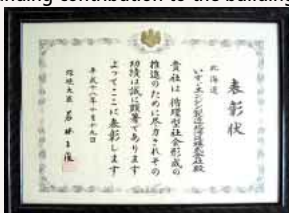 nding contribution to the building
表彰状
北海道
いすゞエンジン製造北海道株式会社殿
貴社は循環型社会形成の
推進のために尽力されその
功績は誠に顕著であります
よってここに表彰します
平成十八年十月十九日
環境大臣 若林正俊